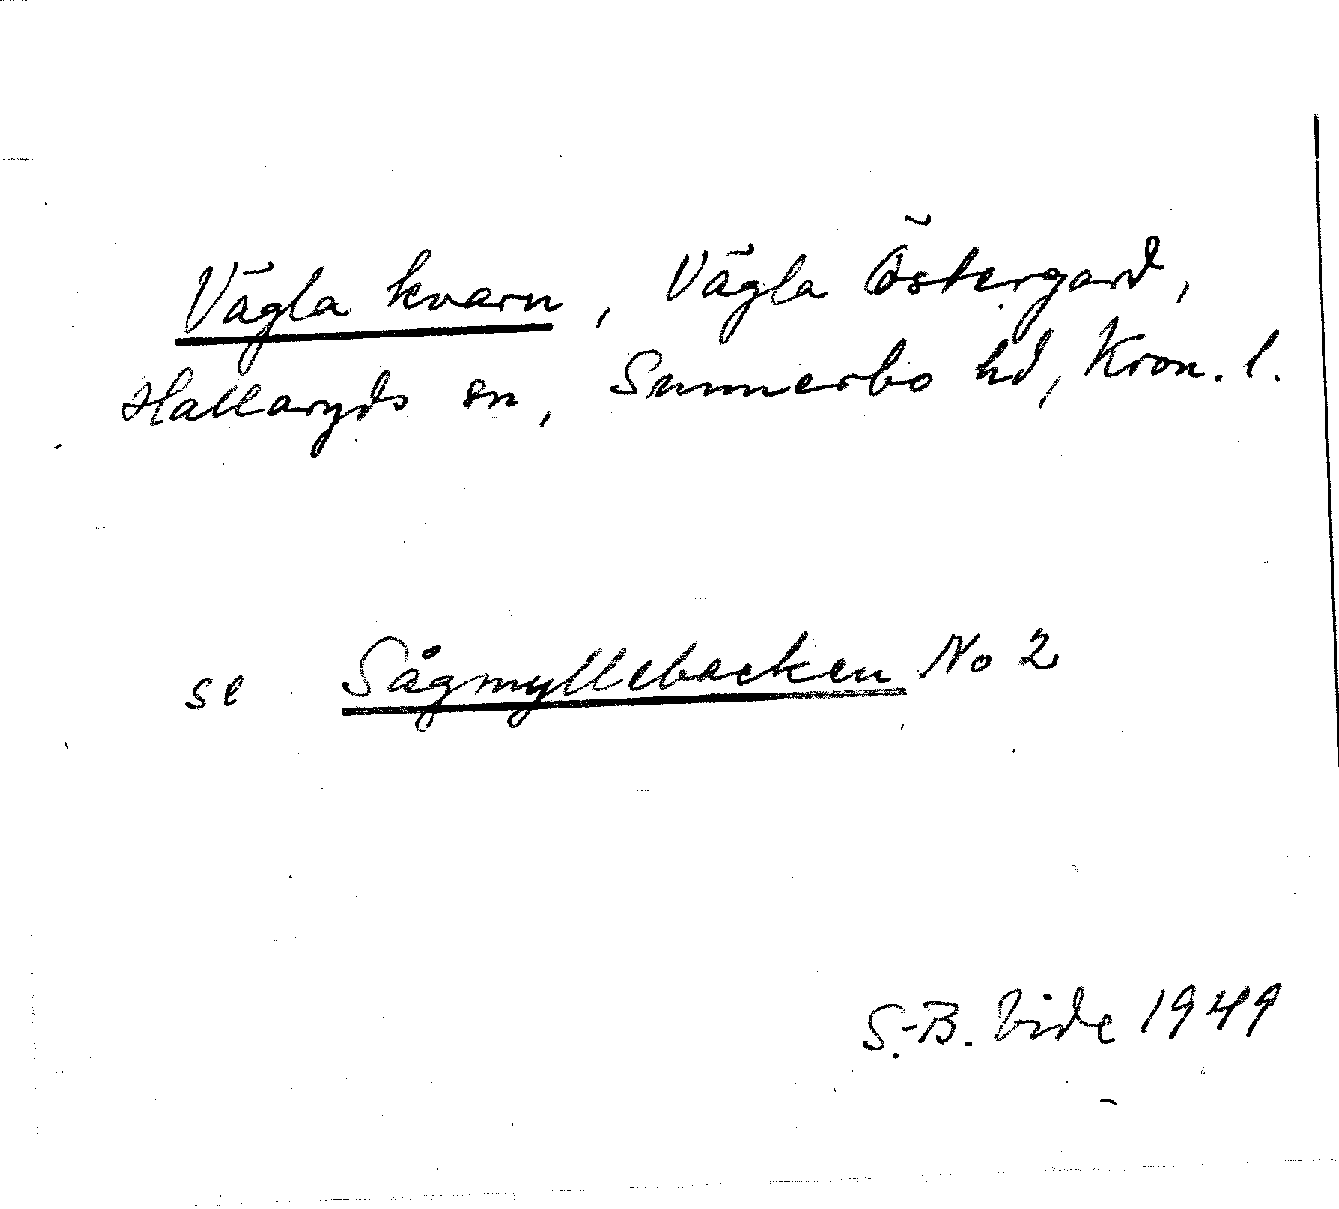 Vägla kvarn, Vägla Östergard,
Hallaryds sn, Sunnerbo hd, Kron. l.
se Sågmyllebacken No 2
S.-B. Vide 1949